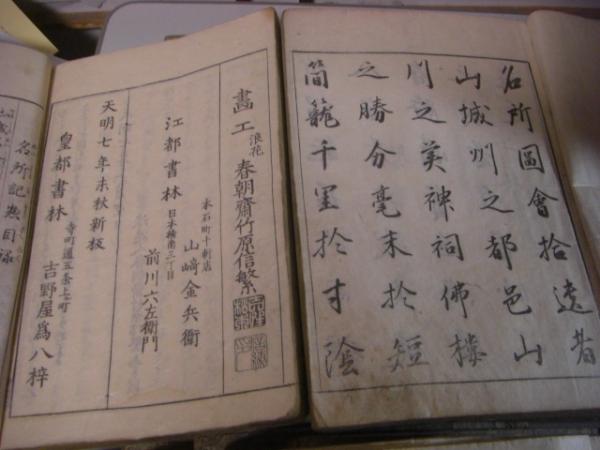 名所圖會拾遺者
山城州之都邑山
川之美神祠佛樓
之勝分毫末於短
簡籠千里於寸陰
畫工 浪花 春朝齋竹原信繁
本石町十軒店 山﨑金兵衞
江都書林
日本橋南三丁目 前川六左衞門
天明七年未秋新板
皇都書林 寺町通五条上町 吉野屋爲八梓
名所記惣目録